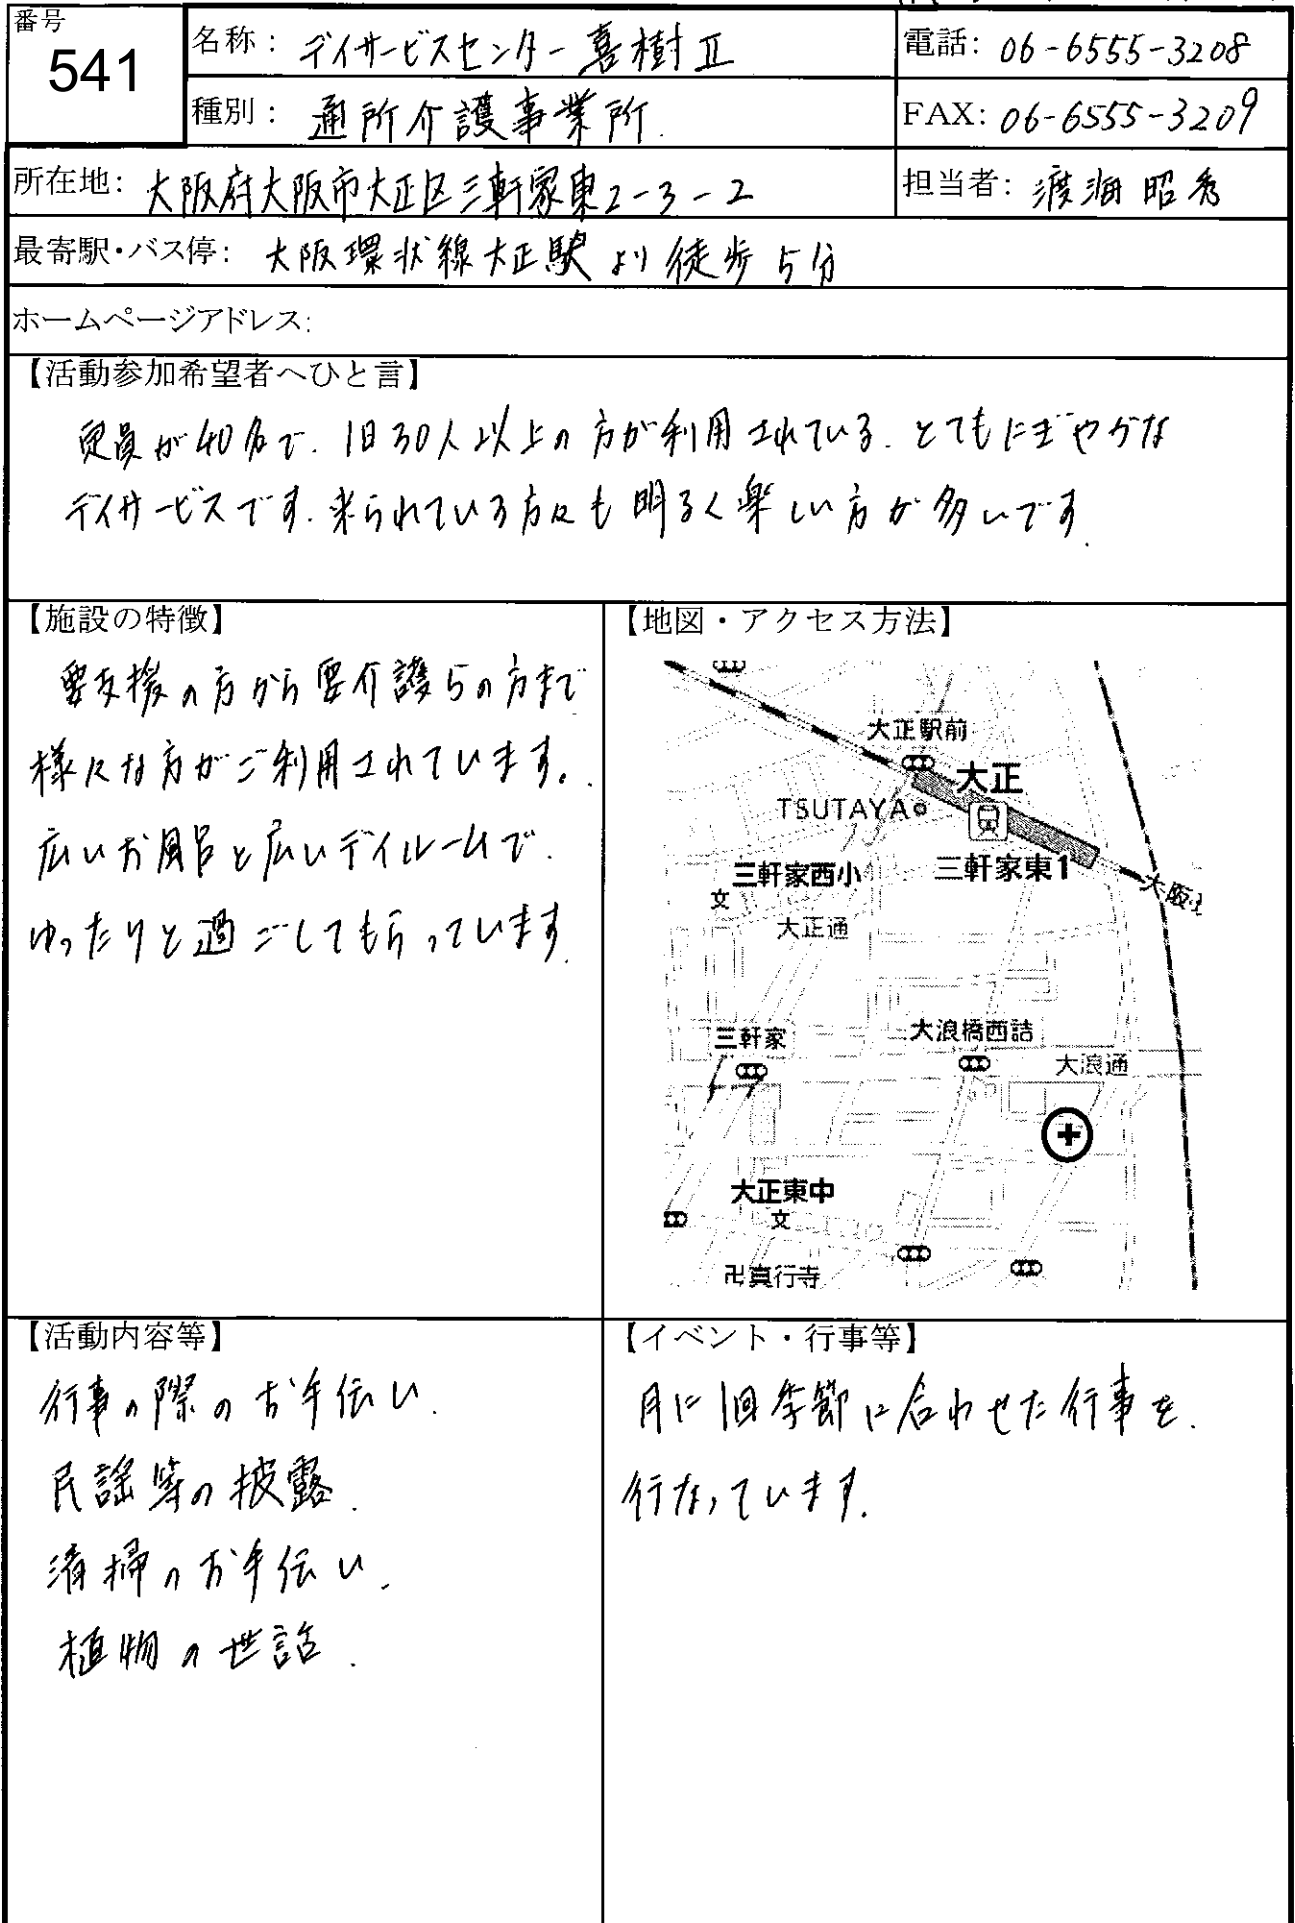 番号
541
名称: デイサービスセンター喜樹Ⅱ
電話: 06-6555-3208
種別: 通所介護事業所.
FAX: 06-6555-3209
所在地: 大阪府大阪市大正区三軒家東2-3-2
担当者: 渡海 昭秀
最寄駅・バス停: 大阪環状線大正駅より徒歩5分
ホームページアドレス:
【活動参加希望者へひと言】
定員が40名で、1日30人以上の方が利用されている、とてもにぎやかな
デイサービスです。来られている方々も明るく楽しい方が多いです.
【施設の特徴】
要支援の方から要介護5の方まで
様々な方がご利用されています。
広いお風呂と広いデイルームで、
ゆったりと過ごしてもらっています.
【地図・アクセス方法】
大正駅前
大正
TSUTAYA
三軒家東1
三軒家西小
文
大阪
大正通
三軒家
大浪橋西詰
大浪通
大正東中
文
卍真行寺
【活動内容等】
行事の際のお手伝い.
民謡等の披露.
清掃のお手伝い.
植物の世話.
【イベント・行事等】
月に1回季節に合わせた行事を.
行なっています.